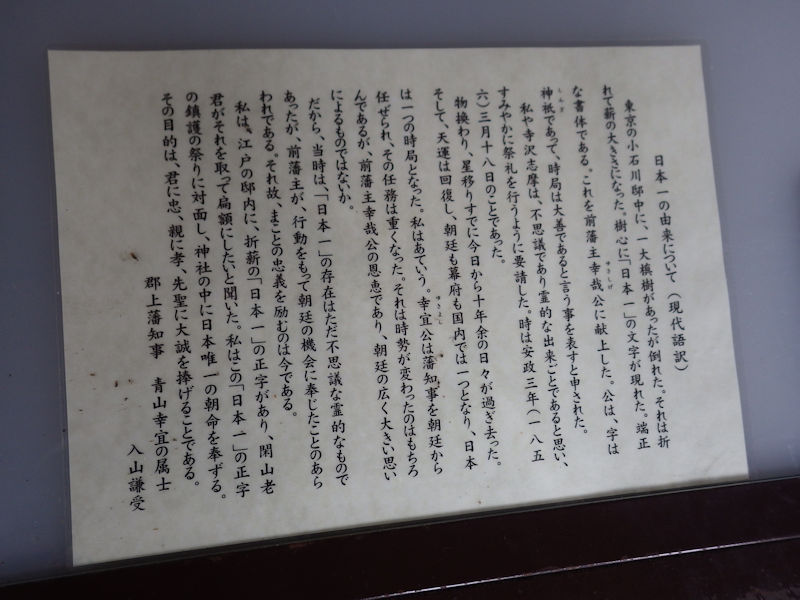 日本一の由来について(現代語訳)
東京の小石川邸中に、一大槙樹があったが倒れた。それは折
れて薪の大きさになった。樹心に「日本一」の文字が現れた。端正
な書体である。これを前藩主幸哉公に献上した。公は、字は
ゆきしげ
神祇であって、時局は大善であると言う事を表すと申された。
しんぎ
私や寺沢志摩は、不思議であり霊的な出来ごとであると思い、
すみやかに祭礼を行うように要請した。時は安政三年(一八五
六)三月十八日のことであった。
物換わり、星移りすでに今日から十年余の日々が過ぎ去った。
そして、天運は回復し、朝廷も幕府も国内では一つとなり、日本
は一つの時局となった。私はあていう。幸宜公は藩知事を朝廷から
ゆきよし
任ぜられ、その任務は重くなった。それは時勢が変わったのはもちろ
んであるが、前藩主幸哉公の恩恵であり、朝廷の広く大きい思い
によるものではないか。
だから、当時は、「日本一」の存在はただ不思議な霊的なもので
あったが、前藩主が、行動をもって朝廷の機会に奉じたことのあら
われである。それ故、まことの忠義を励むのは今である。
私は、江戸の邸内に、折薪の「日本一」の正字があり、閑山老
君がそれを取って扁額にしたいと聞いた。私はこの「日本一」の正字
の鎮護の祭りに対面し、神社の中に日本唯一の朝命を奉ずる。
その目的は、君に忠、親に孝、先聖に大誠を捧げることである。
郡上藩知事 青山幸宜の属士
入山謙受